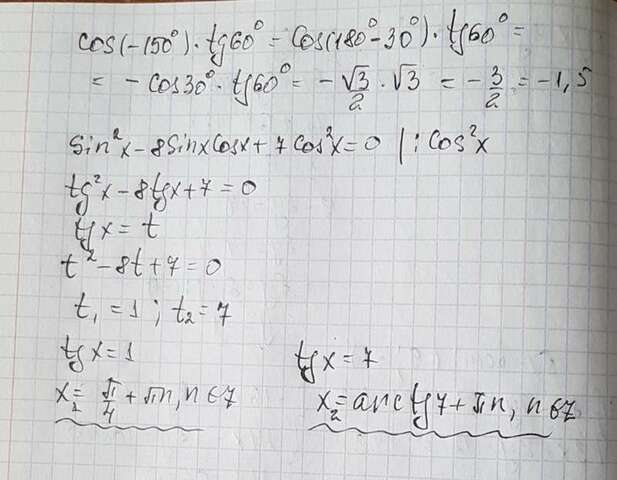 cos(-150°)·tg60° = cos(180°-30°)·tg60° =
= -cos30°·tg60° = -√3/2·√3 = -3/2 = -1,5
sin²x - 8sinxcosx + 7cos²x = 0 |:cos²x
tg²x - 8tgx + 7 = 0
tgx = t
t² - 8t + 7 = 0
t₁ = 1; t₂ = 7
tgx = 1
x₁ = π/4 + πn, n∈Z
tgx = 7
x₂ = arctg7 + πn, n∈Z